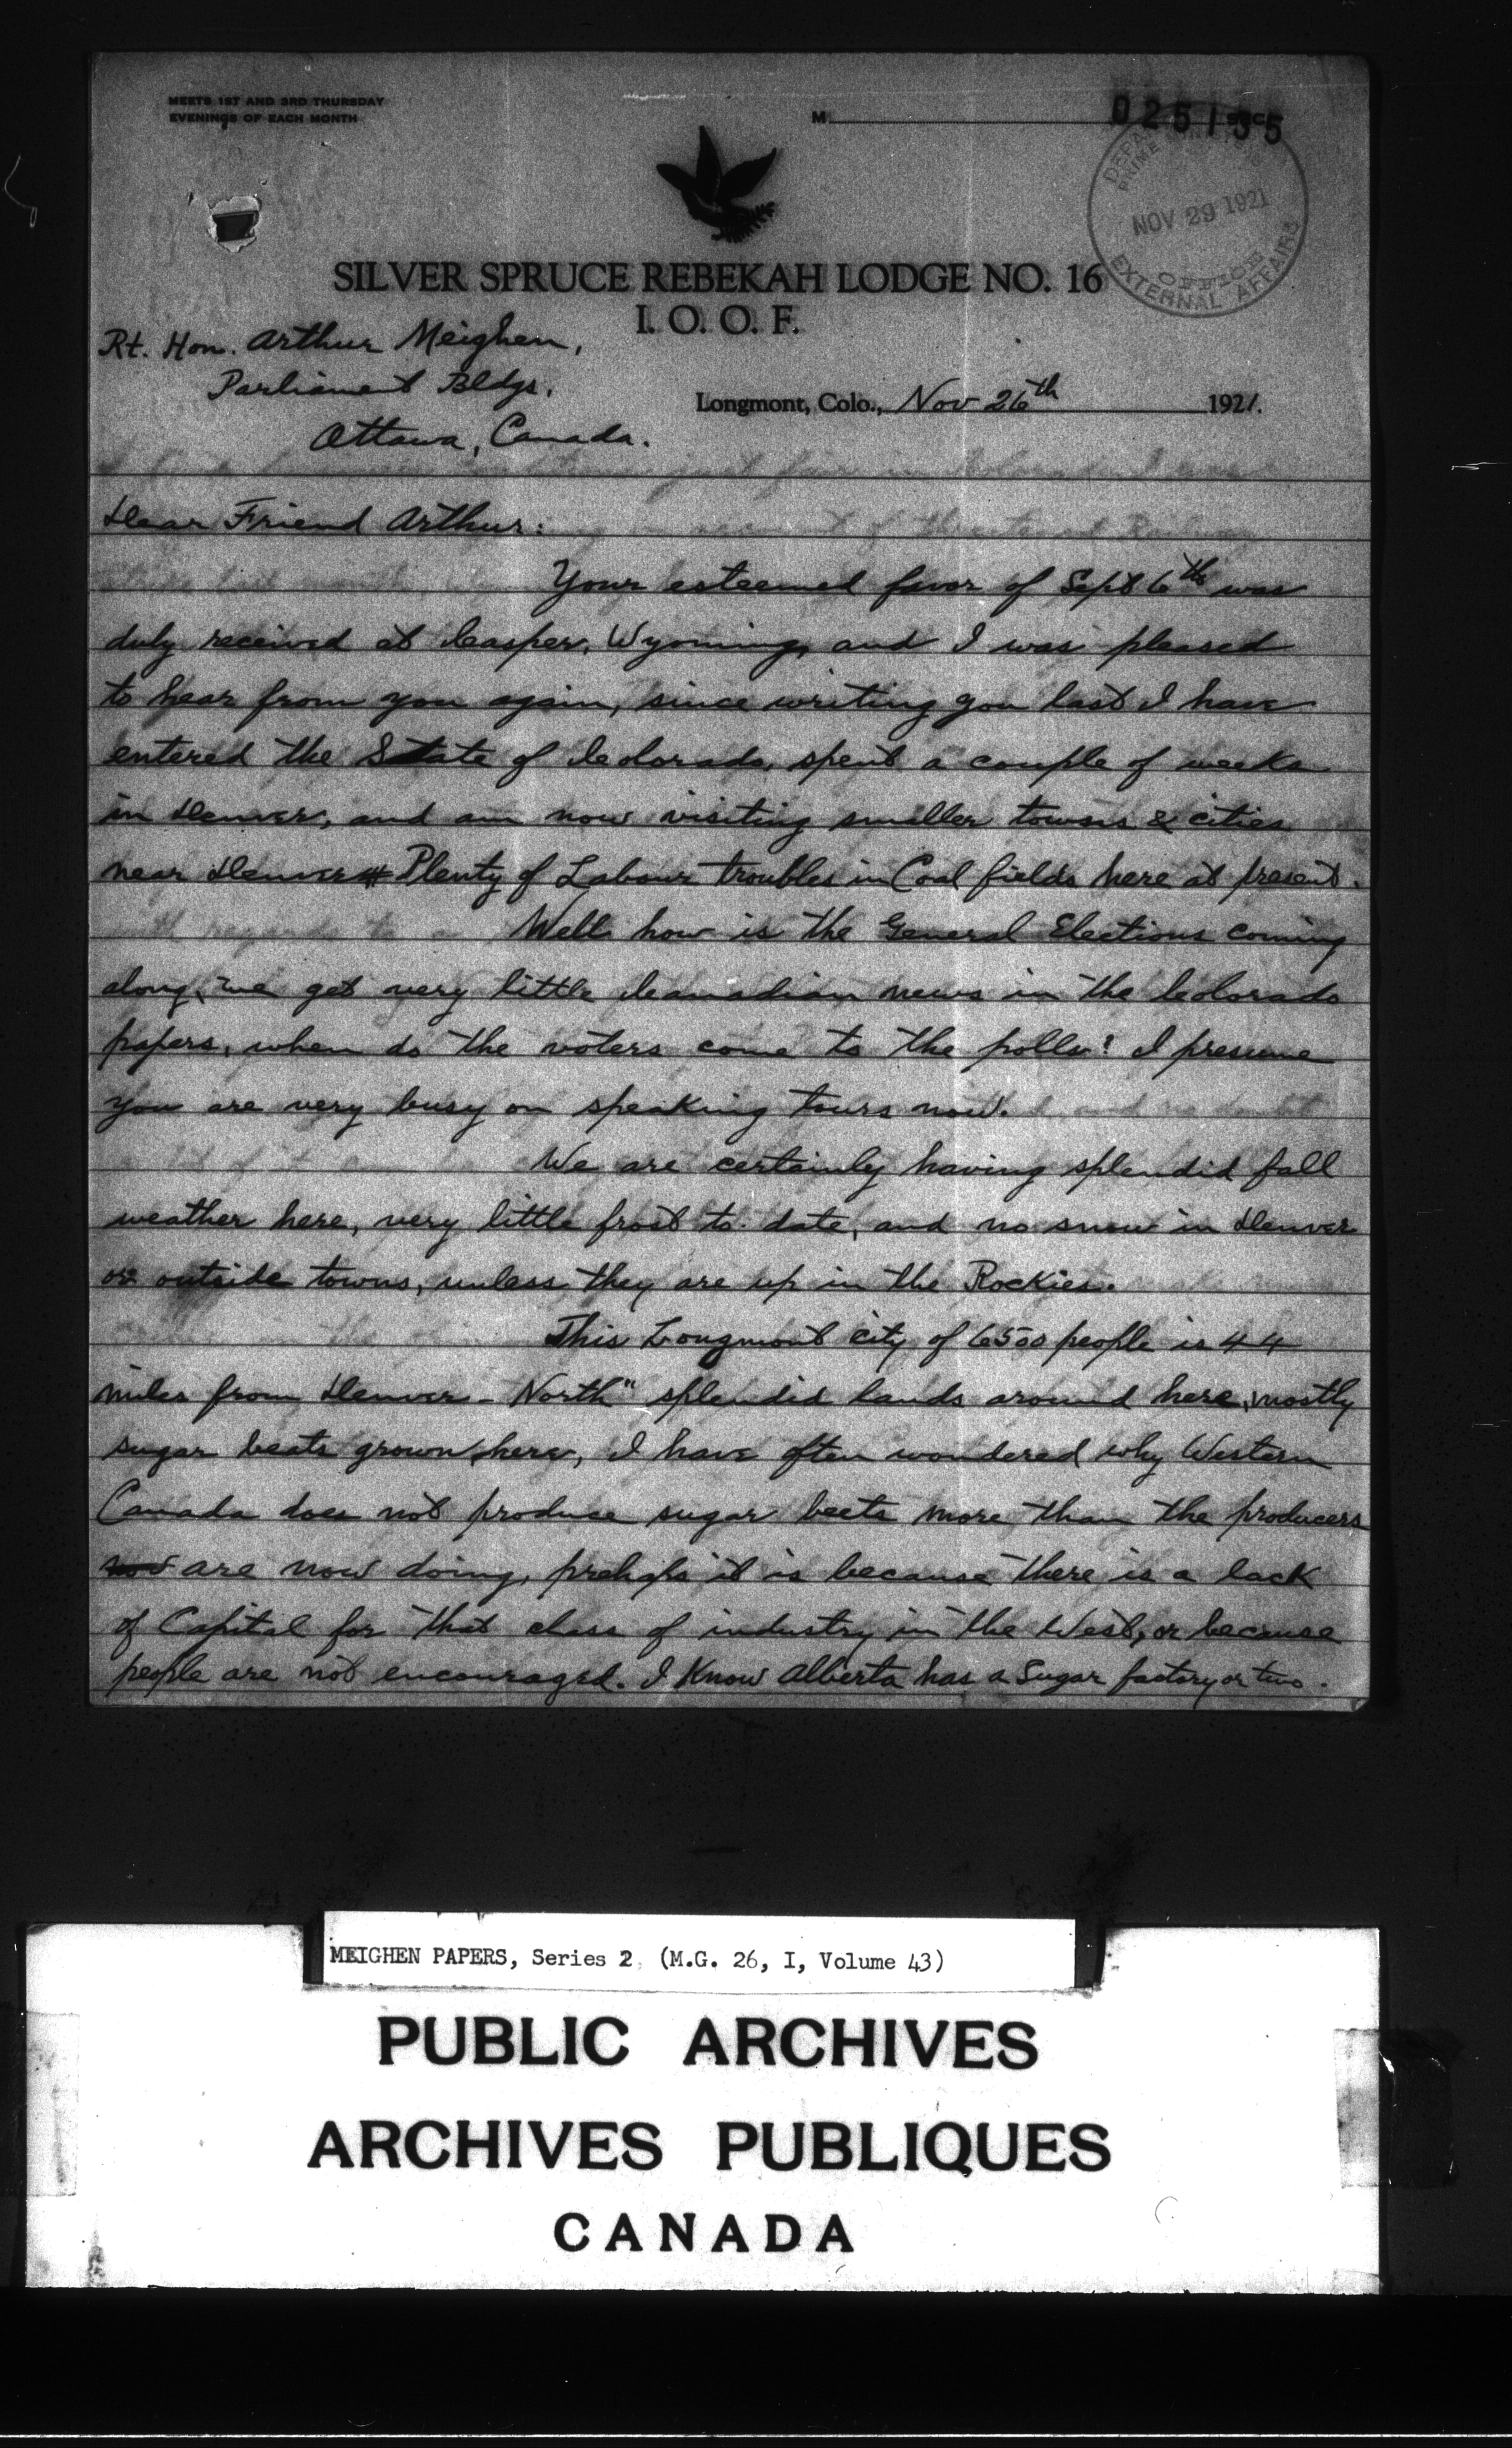 MEETS 1ST AND 3RD THURSDAY
EVENINGS OF EACH MONTH
M
SEC.
025135
PRIME
NOV 29 1921
OFFICE
EXTERNAL AFFAIRS
SILVER SPRUCE REBEKAH LODGE NO. 16
I. O. O. F.
Rt. Hon. Arthur Meighen,
Parliament Bldgs,
Longmont, Colo., Nov 26th 1921.
Ottawa, Canada.
Dear Friend Arthur:
Your esteemed favor of Sept 6th was
duly received at Casper, Wyoming, and I was pleased
to hear from you again, since writing you last I have
entered the State of Colorado, spent a couple of weeks
in Denver, and am now visiting smaller towns & cities
near Denver # Plenty of Labour troubles in Coal fields here at present.
Well how is the General Elections coming
along, we get very little Canadian news in the Colorado
papers, when do the voters come to the polls? I presume
you are very busy on speaking tours now.
We are certainly having splendid fall
weather here, very little frost to date, and no snow in Denver
or outside towns, unless they are up in the Rockies.
This Longmont city of 6500 people is 44
miles from Denver - North" splendid lands around here, mostly
sugar beats grown here, I have often wondered why Western
Canada does not produce sugar beets more than the producers
are now doing, prehaps it is because there is a lack
of Capital for that class of industry in the West, or because
people are not encouraged. I Know Alberta has a Sugar factory or two.
MEIGHEN PAPERS, Series 2 (M.G. 26, I, Volume 43)
PUBLIC ARCHIVES
ARCHIVES PUBLIQUES
CANADA